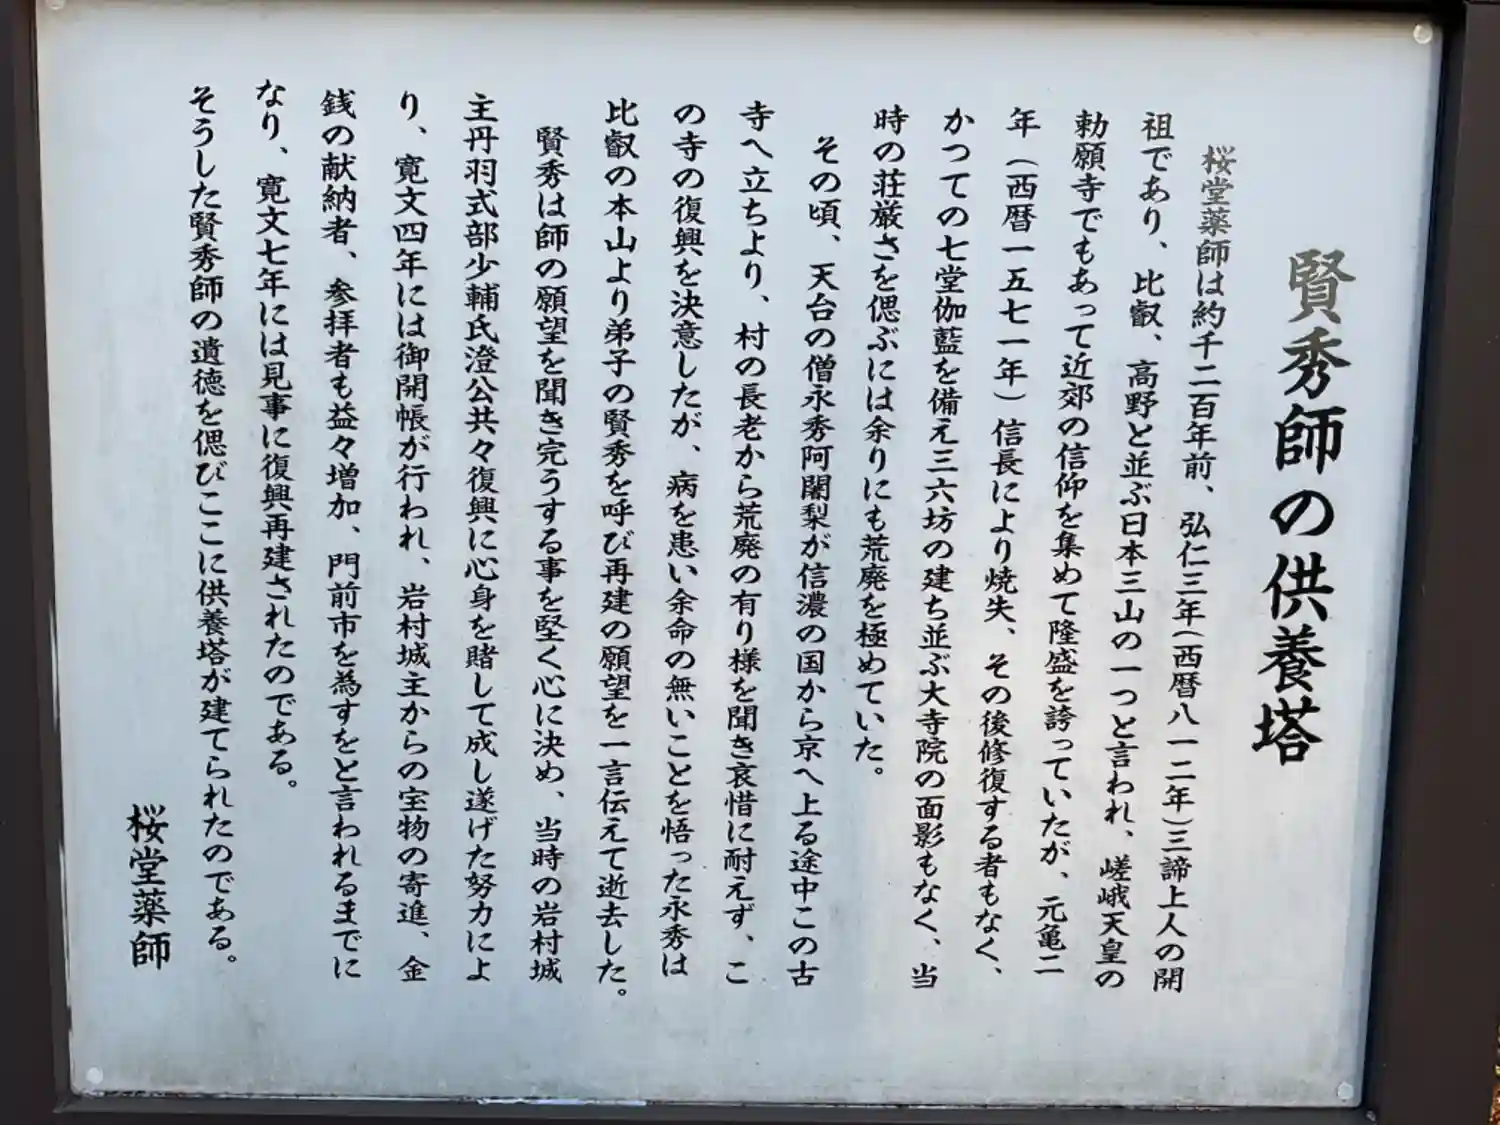 賢秀師の供養塔
桜堂薬師は約千二百年前、弘仁三年(西暦八一二年)三諦上人の開
祖であり、比叡、高野と並ぶ日本三山の一つと言われ、嵯峨天皇の
勅願寺でもあって近郊の信仰を集めて隆盛を誇っていたが、元亀二
年(西暦一五七一年)信長により焼失、その後修復する者もなく、
かつての七堂伽藍を備え三六坊の建ち並ぶ大寺院の面影もなく、当
時の荘厳さを偲ぶには余りにも荒廃を極めていた。
その頃、天台の僧永秀阿闍梨が信濃の国から京へ上る途中この古
寺へ立ちより、村の長老から荒廃の有り様を聞き哀惜に耐えず、こ
の寺の復興を決意したが、病を患い余命の無いことを悟った永秀は
比叡の本山より弟子の賢秀を呼び再建の願望を一言伝えて逝去した。
賢秀は師の願望を聞き完うする事を堅く心に決め、当時の岩村城
主丹羽式部少輔氏澄公共々復興に心身を賭して成し遂げた努力によ
り、寛文四年には御開帳が行われ、岩村城主からの宝物の寄進、金
銭の献納者、参拝者も益々増加、門前市を為すをと言われるまでに
なり、寛文七年には見事に復興再建されたのである。
そうした賢秀師の遺徳を偲びここに供養塔が建てられたのである。
桜堂薬師